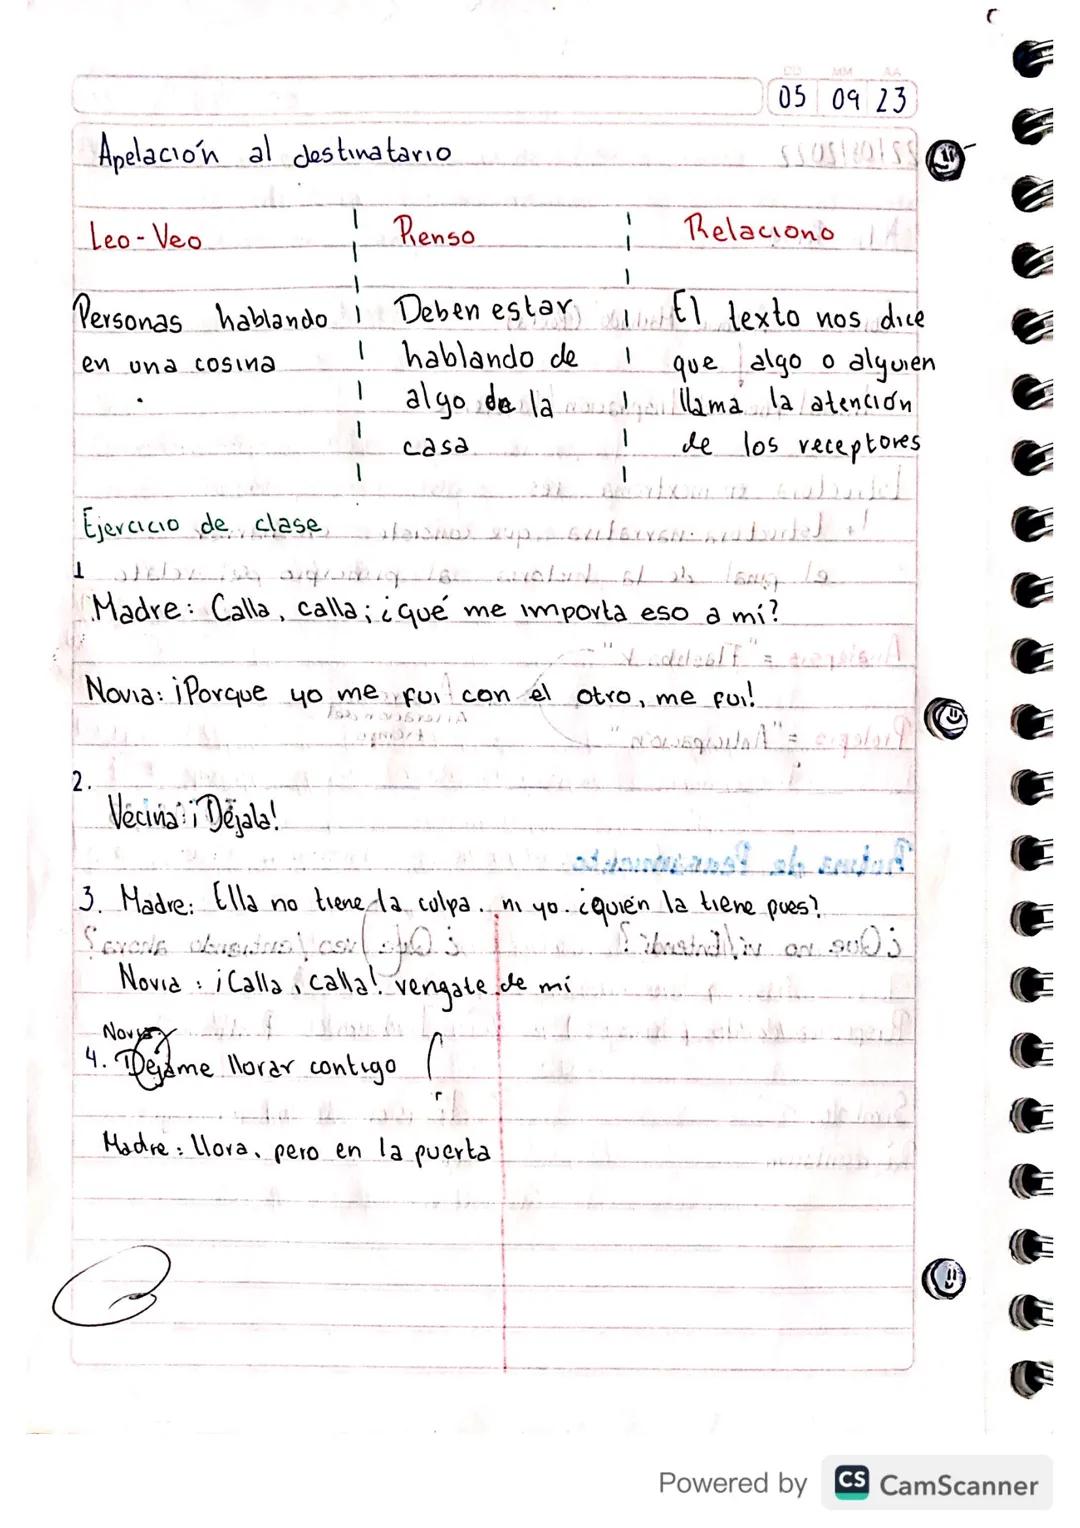 DD MM AA
05 09 23
Apelación al destinatario
Leo-Veo
Pienso
Relaciono
Personas hablando
en una cosina
Deben estar
hablando de
algo de la
casa
El texto nos dice
que algo o alguien
llama la atención
de los receptores
Ejercicio de clase
1
Madre: Calla, calla; ¿qué me importa eso a mí?
Novia: ¡Porque yo me fui con el otro, me fui!
2.
Vecina: ¡Déjala!
3. Madre: Ella no tiene la culpa. ni yo. ¿quién la tiene pues?
Novia: ¡Calla, calla! vengate de mí
Novia:
4. Déjame llorar contigo
Madre: llora, pero en la puerta
Powered by CS CamScanner